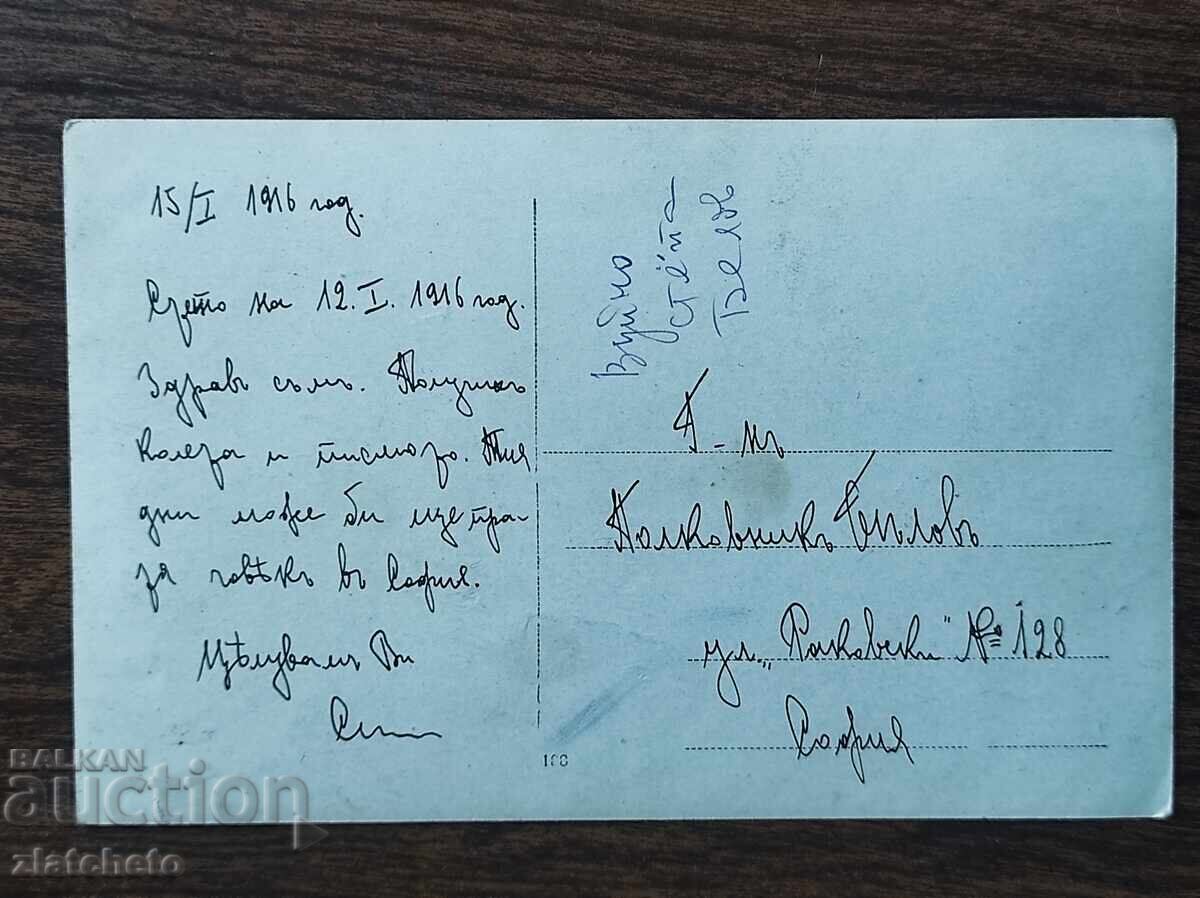 15/I 1916 год.
Снето на 12.I.1916 год.
Здравъ съмъ. Получихъ
колета и писмото. Тия
дни може би ще пра-
тя човѣкъ въ София.
Цѣлувамъ Ви
Вуйчо
Стёпа
Бѣлов
Г-нъ
Полковникъ Бѣловъ
ул. „Раковски" № 128
София
188
BALKAN
auction
zlatcheto